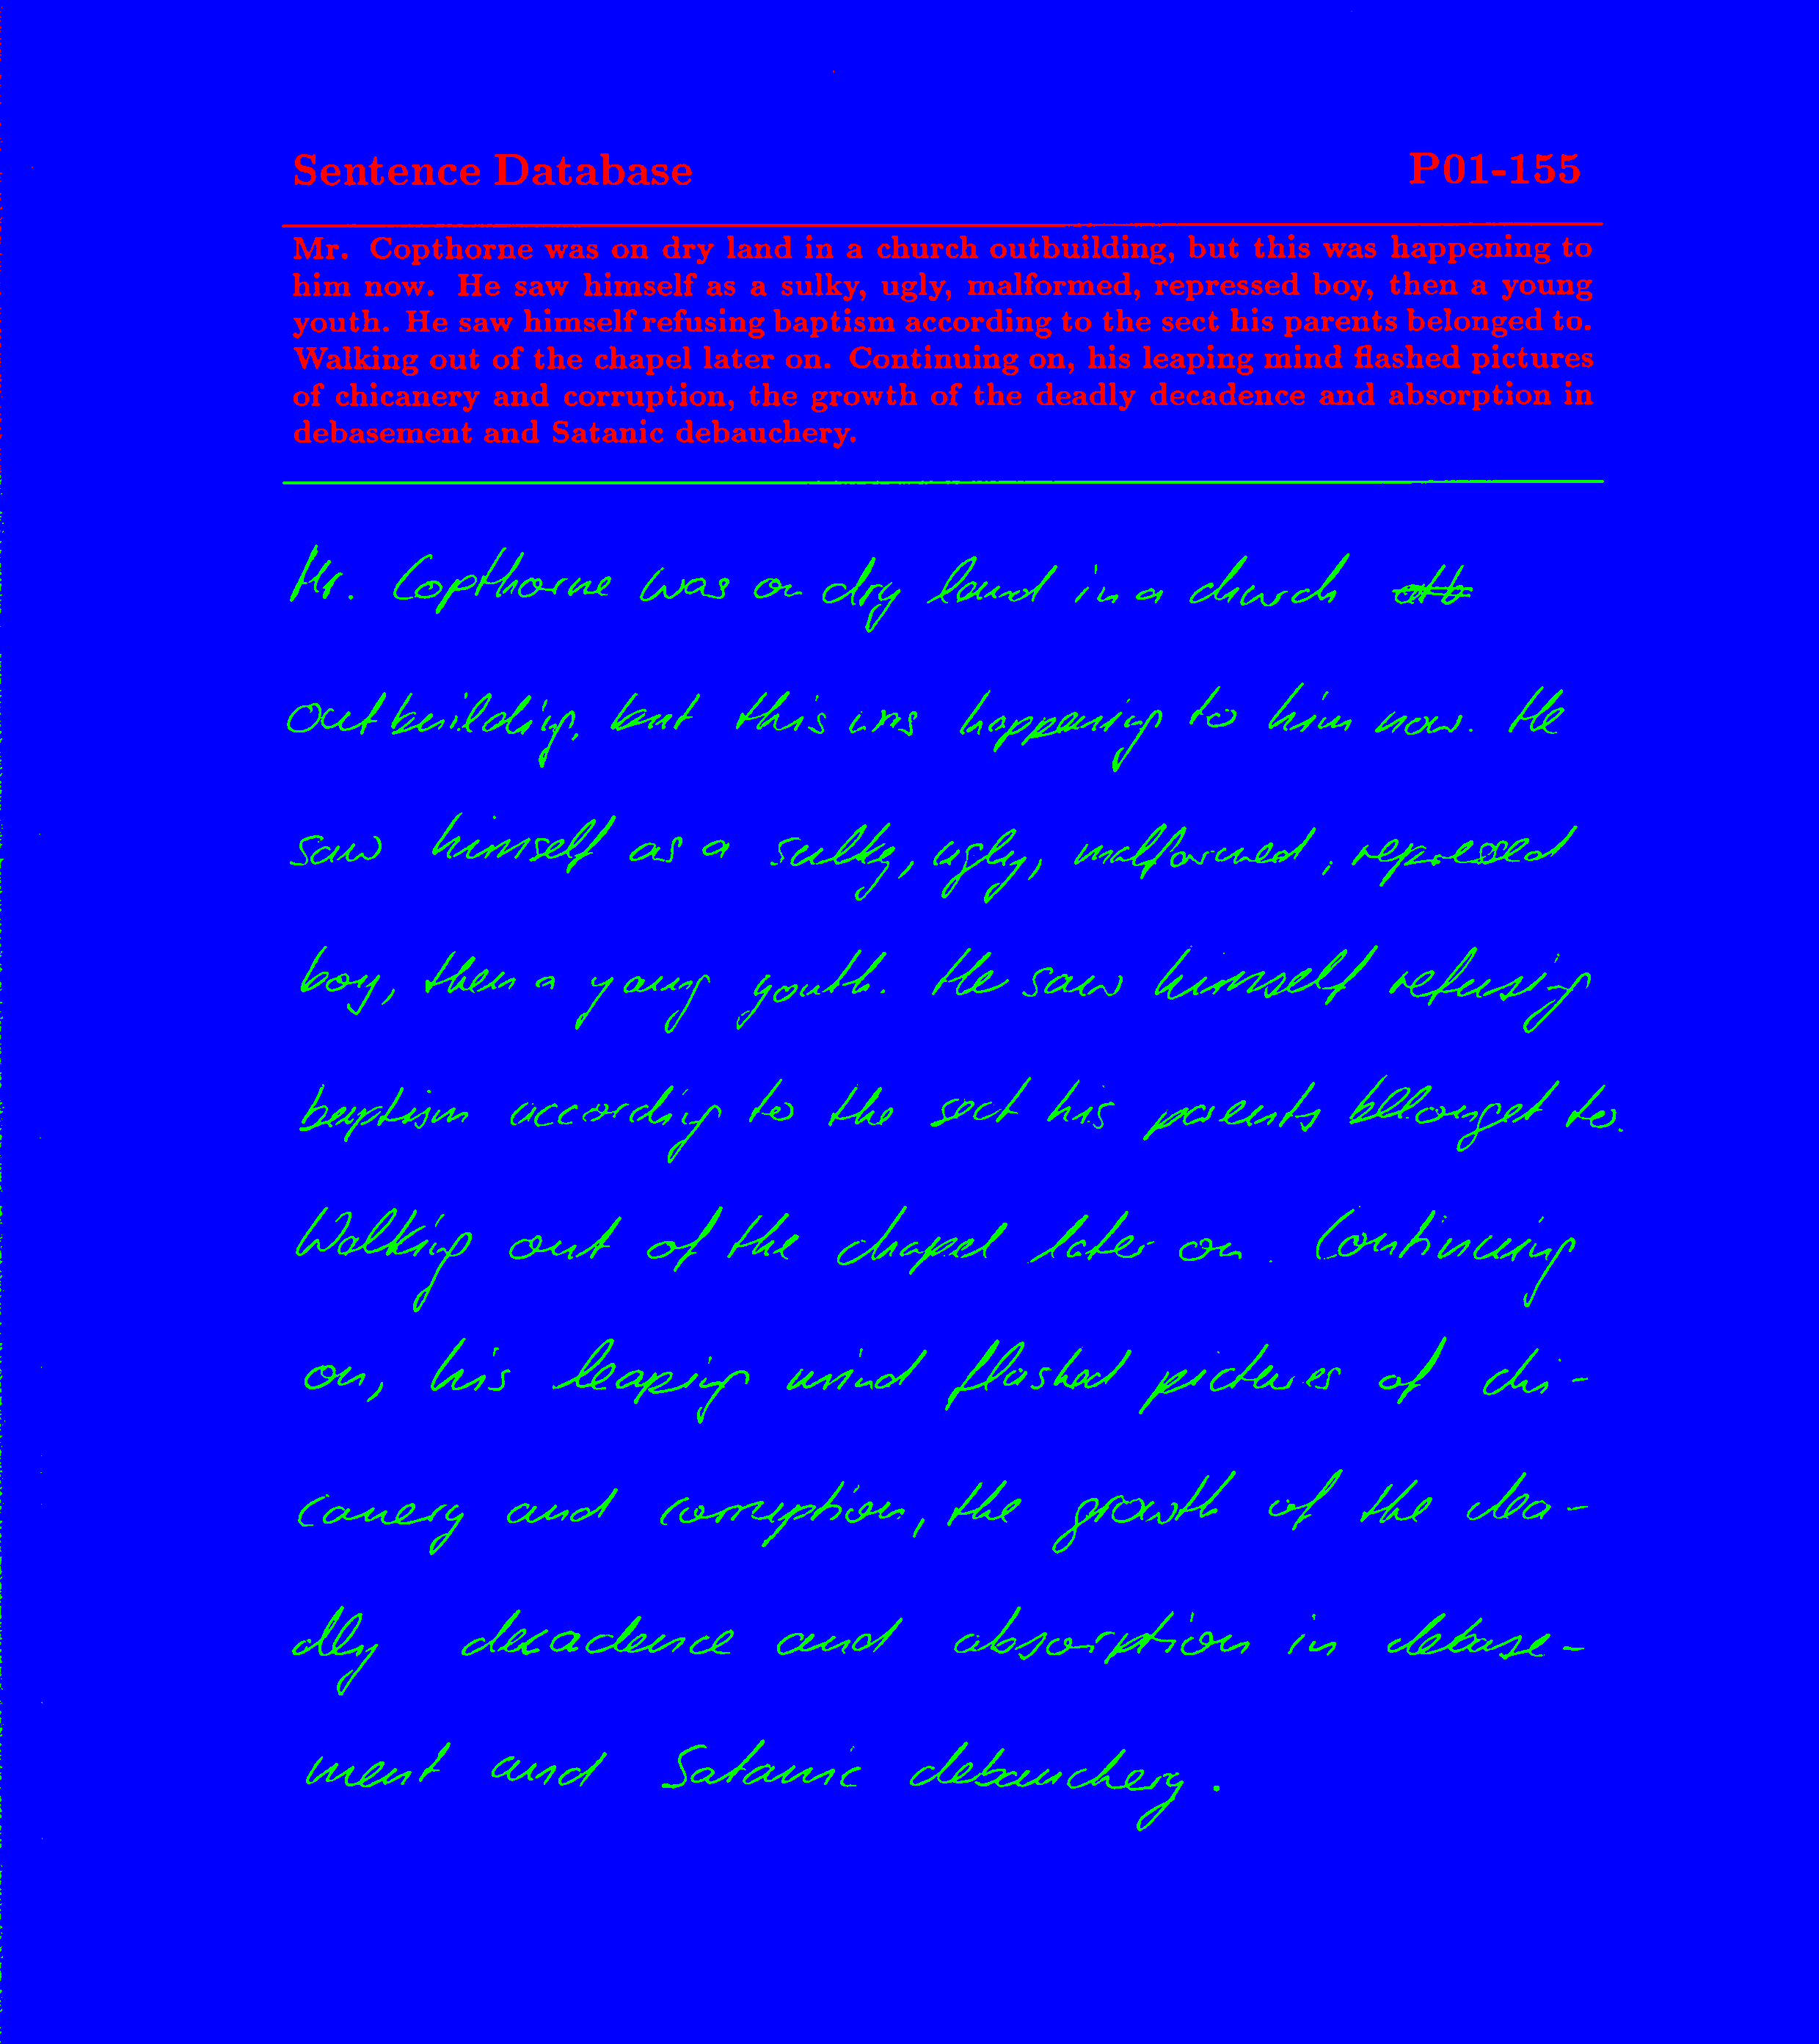 Sentence Database P01-155
Mr. Copthorne was on dry land in a church outbuilding, but this was happening to
him now. He saw himself as a sulky, ugly, malformed, repressed boy, then a young
youth. He saw himself refusing baptism according to the sect his parents belonged to.
Walking out of the chapel later on. Continuing on, his leaping mind flashed pictures
of chicanery and corruption, the growth of the deadly decadence and absorption in
debasement and Satanic debauchery.
Mr. Copthorne was on dry land in a church
outbuilding, but this was happening to him now. He
saw himself as a sulky, ugly, malformed, repressed
boy, then a young youth. He saw himself refusing
baptism according to the sect his parents belonget to.
Walking out of the chapel later on. Continuing
on, his leaping mind flashed pictures of chi-
canery and corruption, the growth of the dea-
dly decadence and absorption in debase-
ment and Satanic debauchery.